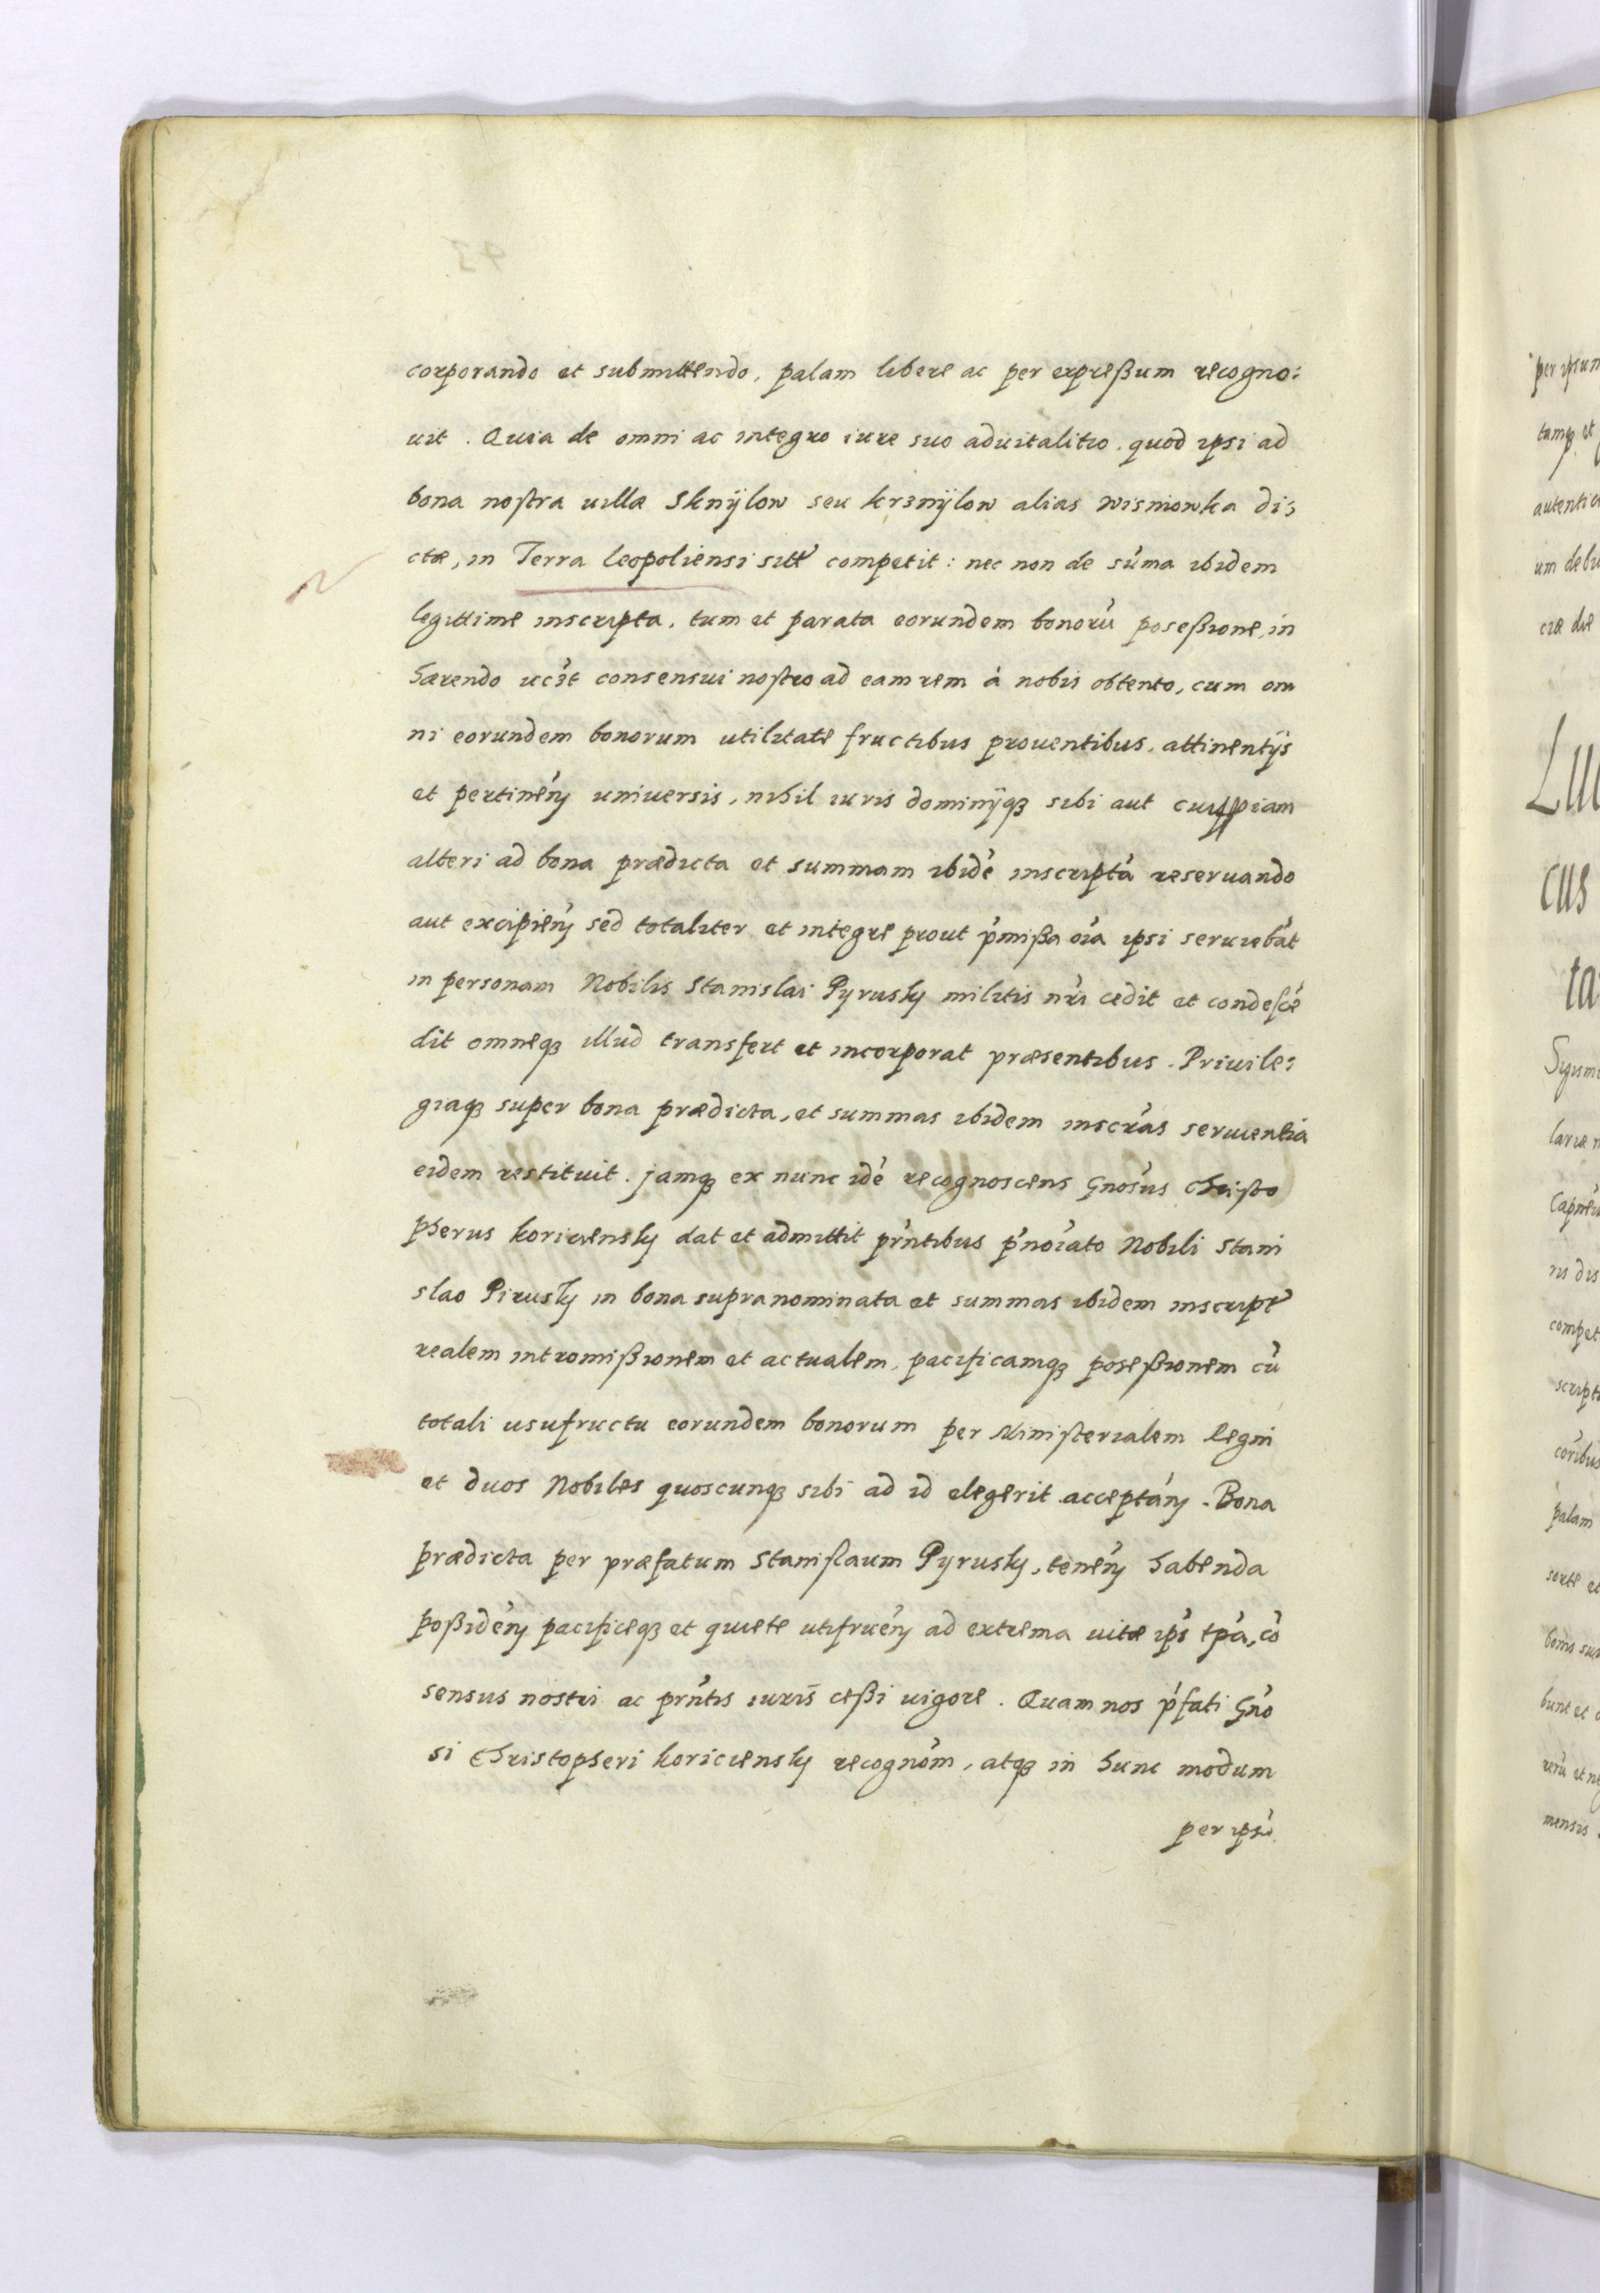 corporando et submittendo, palam libere ac per expreßum recogno:
uit. Quia de omni ac integro iure suo aduitalitio. quod ipsi ad
bona nostra uillæ Sknÿlow seu krznÿlow alias Wisniowka di:
ctæ, in Terra Leopoliensi sitt̃ competit: nec non de sũma ibidem
legittime inscripta, tum et parata eorundem bonorũ poseßione, in
hærendo uczt consensui nostro ad eam rem à nobis obtento, cum om
ni eorundem bonorum utilitate fructibus prouentibus, attinentÿs
et pertineñ uniuersis, nihil iuris dominÿq; sibi aut cuispiam
alteri ad bona prædicta et summam ibidẽ inscriptã reseruando
aut excipieñ sed totaliter et integre prout p̃mißa oĩa ipsi seruiebãt
in personam Nobilis Stanislai Pyrusky militis nr̃i cedit et condescẽ
dit omneq; illud transfert et incorporat præsentibus. Priuile:
giaq; super bona prædicta, et summas ibidem inscr̃as seruientia
eidem restituit. jamq; ex nunc idẽ recognoscens Gnosũs Christo
pherus koriciensky dat et admittit pr̃ntibus p̃noĩato Nobili Stani
slao Pirusky in bona supranominata et summas ibidem inscript̃
realem intromißionem et actualem, pacificamq; poseßionem cũ
totali usufructu eorundem bonorum per Ministerialem Regni
et duos Nobiles quoscunq; sibi ad id elegerit acceptañ. Bona
prædicta per præfatum Stanislaum Pyrusky, teneñ habenda
poßideñ pacificeq; et quiete utifrueñ ad extrema uitæ ip̃s tp̃a, cõ
sensus nostri ac pr̃ntis iuris̃ ceßi uigore. Quam nos p̃fati Gño
si Christopheri koriciensky recognõm, atq; in hunc modum
per ipsũ